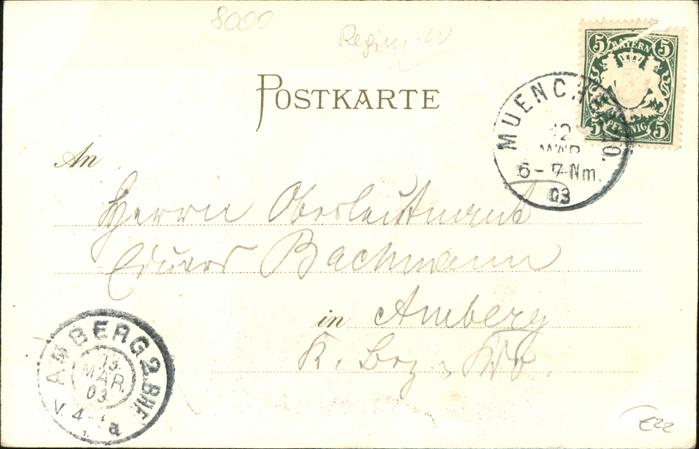 8000
POSTKARTE
5 BAYERN 5
5 PFENNIG 5
MUENCHEN 10.
12.
MAR
6-7 Nm.
03
An
Herrn Oberleutnant
Eduard Bachmann
in Amberg
K. Bez. Kdo.
AMBERG 2. BHF.
13.
MAR.
03
V. 4
a